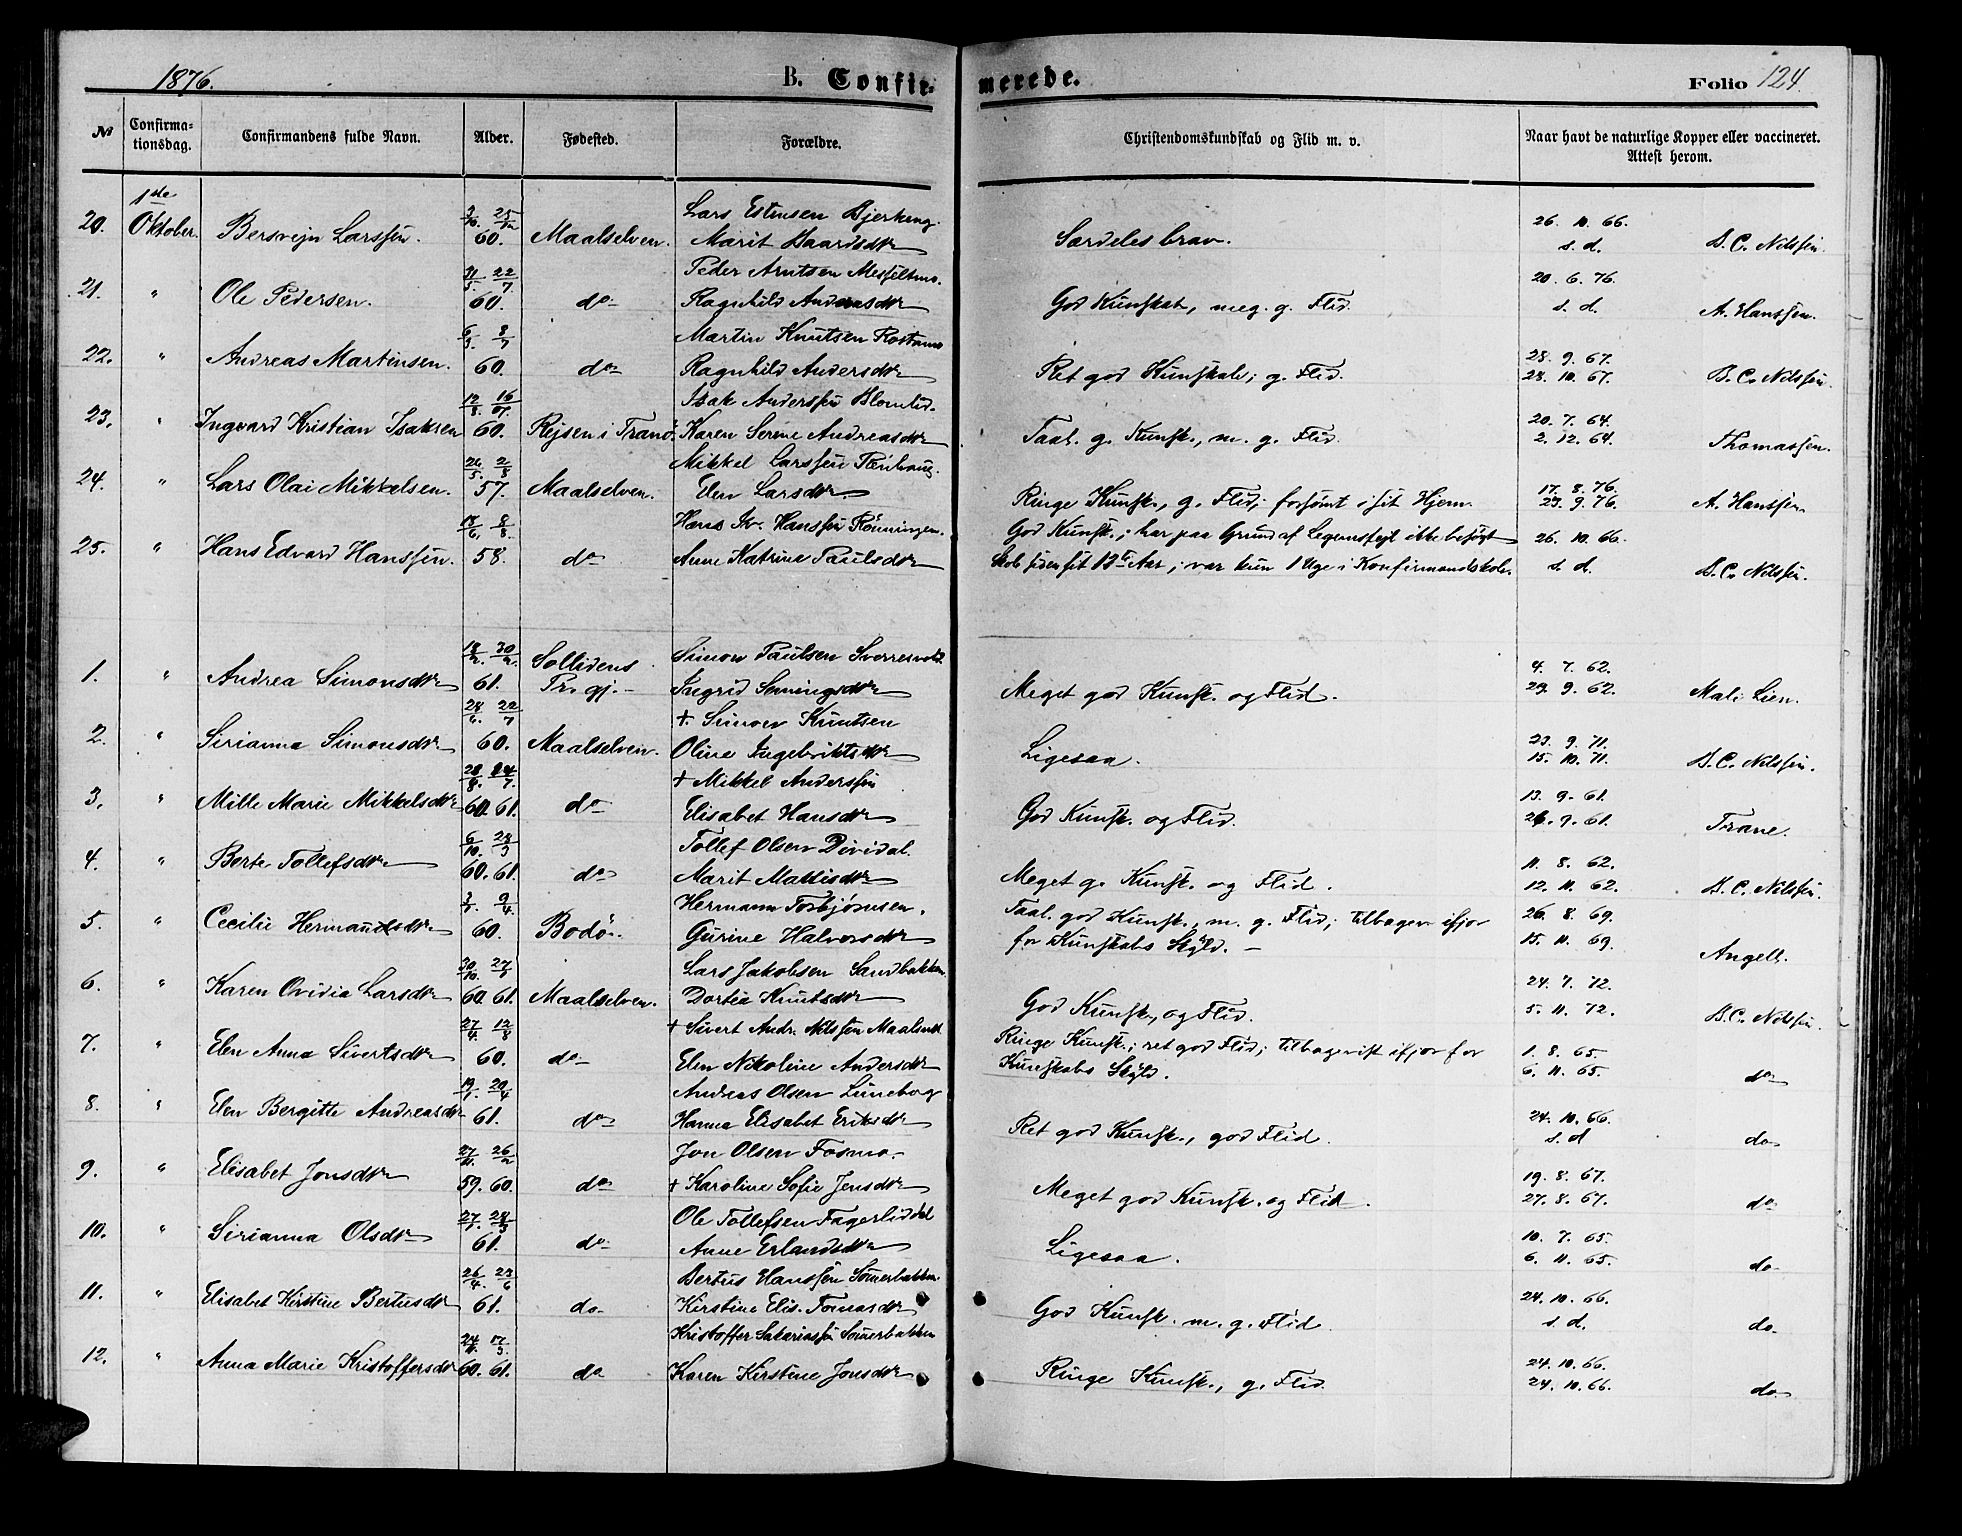 1876.
B. Confirmerede.
Folio 124.
No
Confirmationsdag.
Confirmandens fulde Navn.
Alder.
Fødested.
Forældre.
Christendomskundskab og Flid m. v.
Naar havt de naturlige Kopper eller vaccineret. Attest herom.
1ste
20. Oktober. Bersvejn Larssen. 60. Maalselven. Lars Estensen Bjerkeng.
Marit Baardsdtr
Særdeles brav.
26. 10. 66.
s. d. B. C. Nilssen.
21. " Ole Pedersen. 31/5 22/7 60. do Peder Arntsen
Ragnhild Andersdtr
God Kunskab, meg. g. Flid.
20. 6. 76.
s. d. A. Hanssen.
22. " Andreas Martinsen. 60. do Martin Knutsen
Ragnhild Andersdtr
Ret god Kunskab; g. Flid.
28. 9. 67.
28. 10. 67. B. C. Nilssen.
23. " Ingvard Kristian Isaksen 60. Rejsen i Tranö. Isak Anderssen Blomlid.
Karen Serine Andreasdtr
Taal. g. Kunsk., m. g. Flid.
20. 7. 64.
2. 12. 64. Thomassen.
24. " Lars Olai Mikkelsen. 26/5 2/8 57. Maalselven. Mikkel Larssen
Elen Larsdtr
Ringe Kunsk., g. Flid; forsømt i sit Hjem.
17. 8. 76.
23. 9. 76. A. Hanssen
25. " Hans Edvard Hanssen. 18/6 8/8 58. do Hans Kr. Hanssen Rønningen.
Anne Katrine Paulsdtr
God Kunsk.; har paa Grund af Legemsfejl ikke besøgt
Skole siden sit 12te Aar; var kun 1 Uge i Konfirmandskole.
26. 10. 66.
s. d. B. C. Nilssen.
1. " Andrea Simonsdtr 61. Sollidens Pr.gj. Simon Paulsen
Ingrid
Meget god Kunsk. og Flid.
4. 7. 62.
29. 9. 62. Mali Lien.
2. " Sirianna Simonsdtr 22/7 60. Maalselven. + Simon Knutsen
Oline Ingebrigtsdtr
Ligesaa.
23. 9. 71.
15. 10. 71. B. C. Nilssen.
3. " Mille Marie Mikkelsdtr 60. 61. do + Mikkel Anderssen
Elisabet Hansdtr
God Kunsk. og Flid.
13. 9. 61.
26. 9. 61. Trane.
4. " Berte Tollefsdtr 6/10 28/3 60. 61. do Tollef Olsen Dividal.
Marit Mattisdtr
Meget g. Kunsk. og Flid.
11. 8. 62.
12. 11. 62. B. C. Nilssen
5. " Cecilie Hermandsdtr 9/4 60. Bodö. Hermann Torbjørnsen.
Gurine Halvorsdtr
Taal. god Kunsk., m. g. Flid; tilbagev. ifjor
for Kunskabs Skyld.
26. 8. 69.
15. 11. 69. Angell.
6. " Karen Ovidia Larsdtr 60. 61. Maalselven. Lars Jakobsen Sandbakken
Dortea Knutsdtr
God Kunsk., og Flid.
24. 7. 72.
5. 11. 72. B. C. Nilssen.
7. " Elen Anna Sivertsdtr 27/4 12/8 60. do + Sivert Andr. Nilssen
Elen Nikoline Andersdtr
Ringe Kunsk.; ret god Flid; tilbagevist ifjor for
Kunskabs Skyld.
1. 8. 65.
6. 11. 65. do
8. " Elen Bergitte Andreasdtr 61. do Andreas Olsen Luneborg
Hanna Elisabet Eriksdtr
Ret god Kunsk., god Flid.
24. 10. 66.
s. d. do
9. " Elisabet Jonsdtr 27/11 59. 60. do Jon Olsen Fosmo.
+ Karoline Sofie Jensdtr
Meget god Kunsk. og Flid.
19. 8. 67.
27. 8. 67. do
10. " Sirianna Olsdtr 61. do Ole Tollefsen Fagerliddal
Anne Erlandsdtr
Ligesaa.
10. 7. 65.
6. 11. 65. do
11. " Elisabet Kirstine Bertusdtr 26/4 23/6 61. do Bertus Hanssen Sømerbakken
Kirstine Elis. Tomasdtr
God Kunsk. m. g. Flid
24. 10. 66.
s. d. do.
12. " Anna Marie Kristoffersdtr 60. 61. do Kristoffer Sakariassen Sømerbakken
Karen Kirstine Jonsdtr
Ringe Kunsk., g. Flid.
24. 10. 66.
24. 10. 66. do